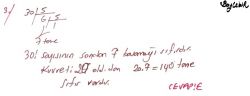 3/ 30 | 5
6 | 5
1
7 tane
30! sayısının sondan 7 basamağı sıfırdır.
Kuvveti 20 old.dan 20.7 = 140 tane
sıfır vardır.
CEVAP:E